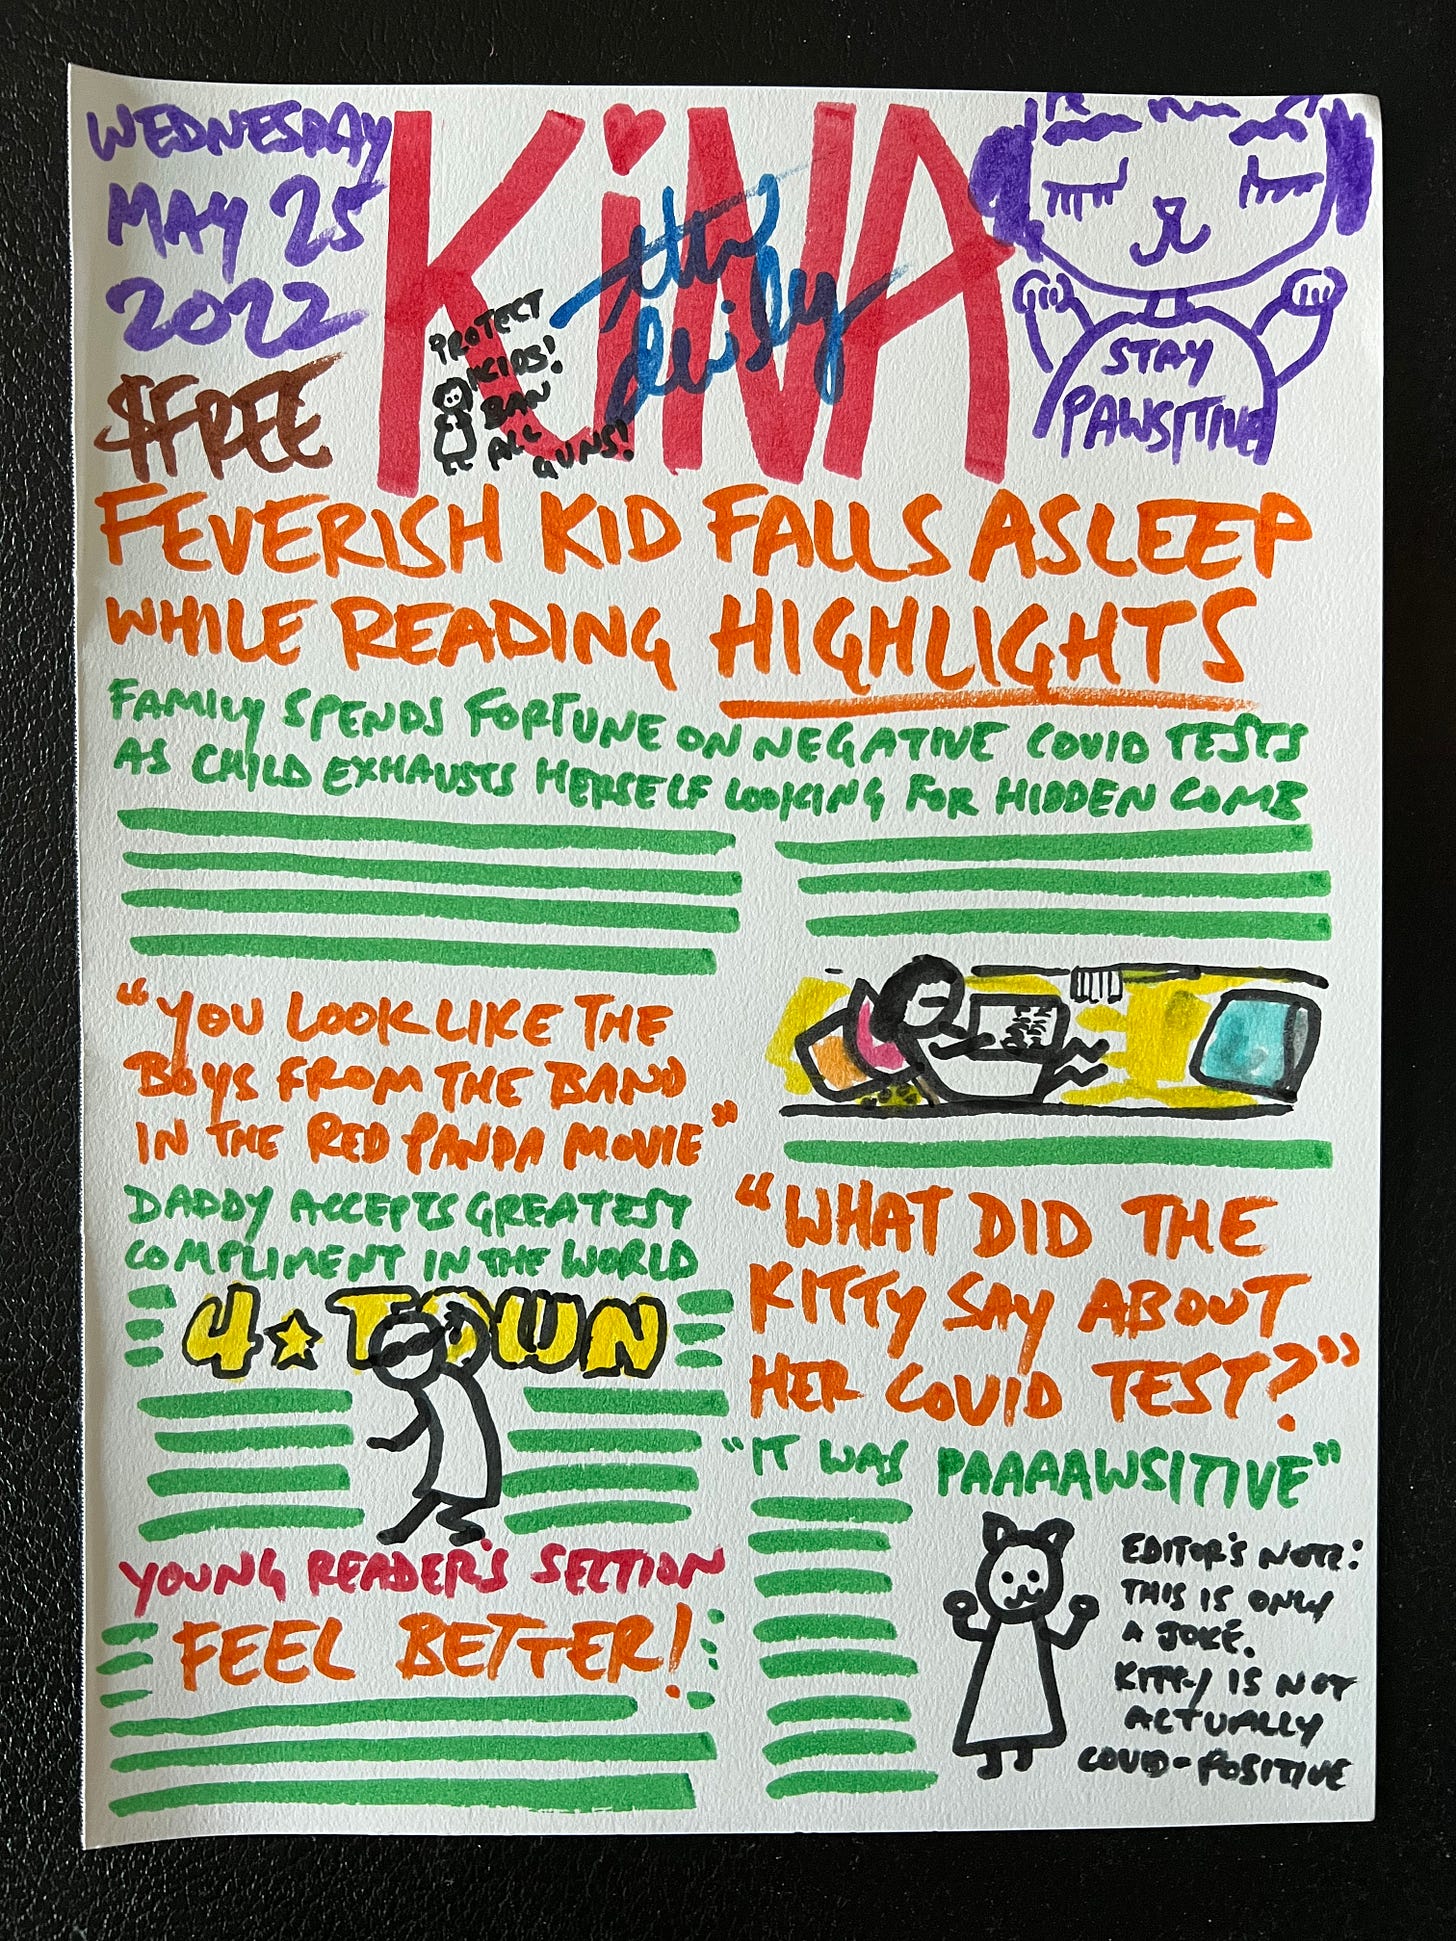 WEDNESDAY
MAY 25
2022
$FREE
KiNA
the daily
PROTECT
KIDS!
BAN
ALL
GUNS!
STAY
PAWSITIVE
FEVERISH KID FALLS ASLEEP
WHILE READING HIGHLIGHTS
FAMILY SPENDS FORTUNE ON NEGATIVE COVID TESTS
AS CHILD EXHAUSTS HERSELF LOOKING FOR HIDDEN COMB
"YOU LOOK LIKE THE
BOYS FROM THE BAND
IN THE RED PANDA MOVIE"
DADDY ACCEPTS GREATEST
COMPLIMENT IN THE WORLD
4★TOWN
YOUNG READER'S SECTION
FEEL BETTER!
"WHAT DID THE
KITTY SAY ABOUT
HER COVID TEST?"
"IT WAS PAAAAWSITIVE"
EDITOR'S NOTE:
THIS IS ONLY
A JOKE.
KITTY IS NOT
ACTUALLY
COVID-POSITIVE